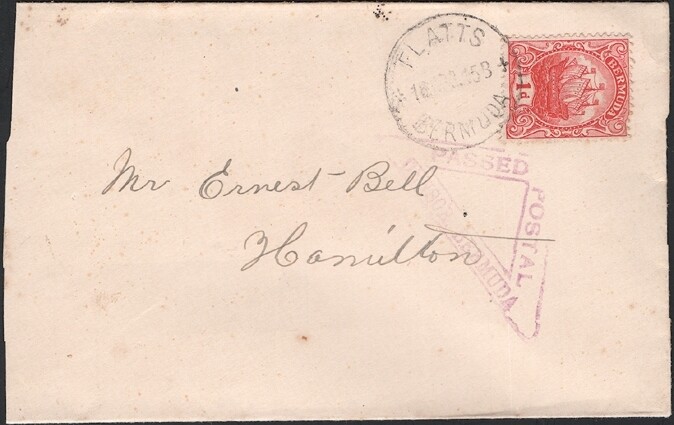 FLATTS
BERMUDA
BERMUDA
1d
PASSED
POSTAL
BERMUDA
Mr Ernest Bell
Hamilton